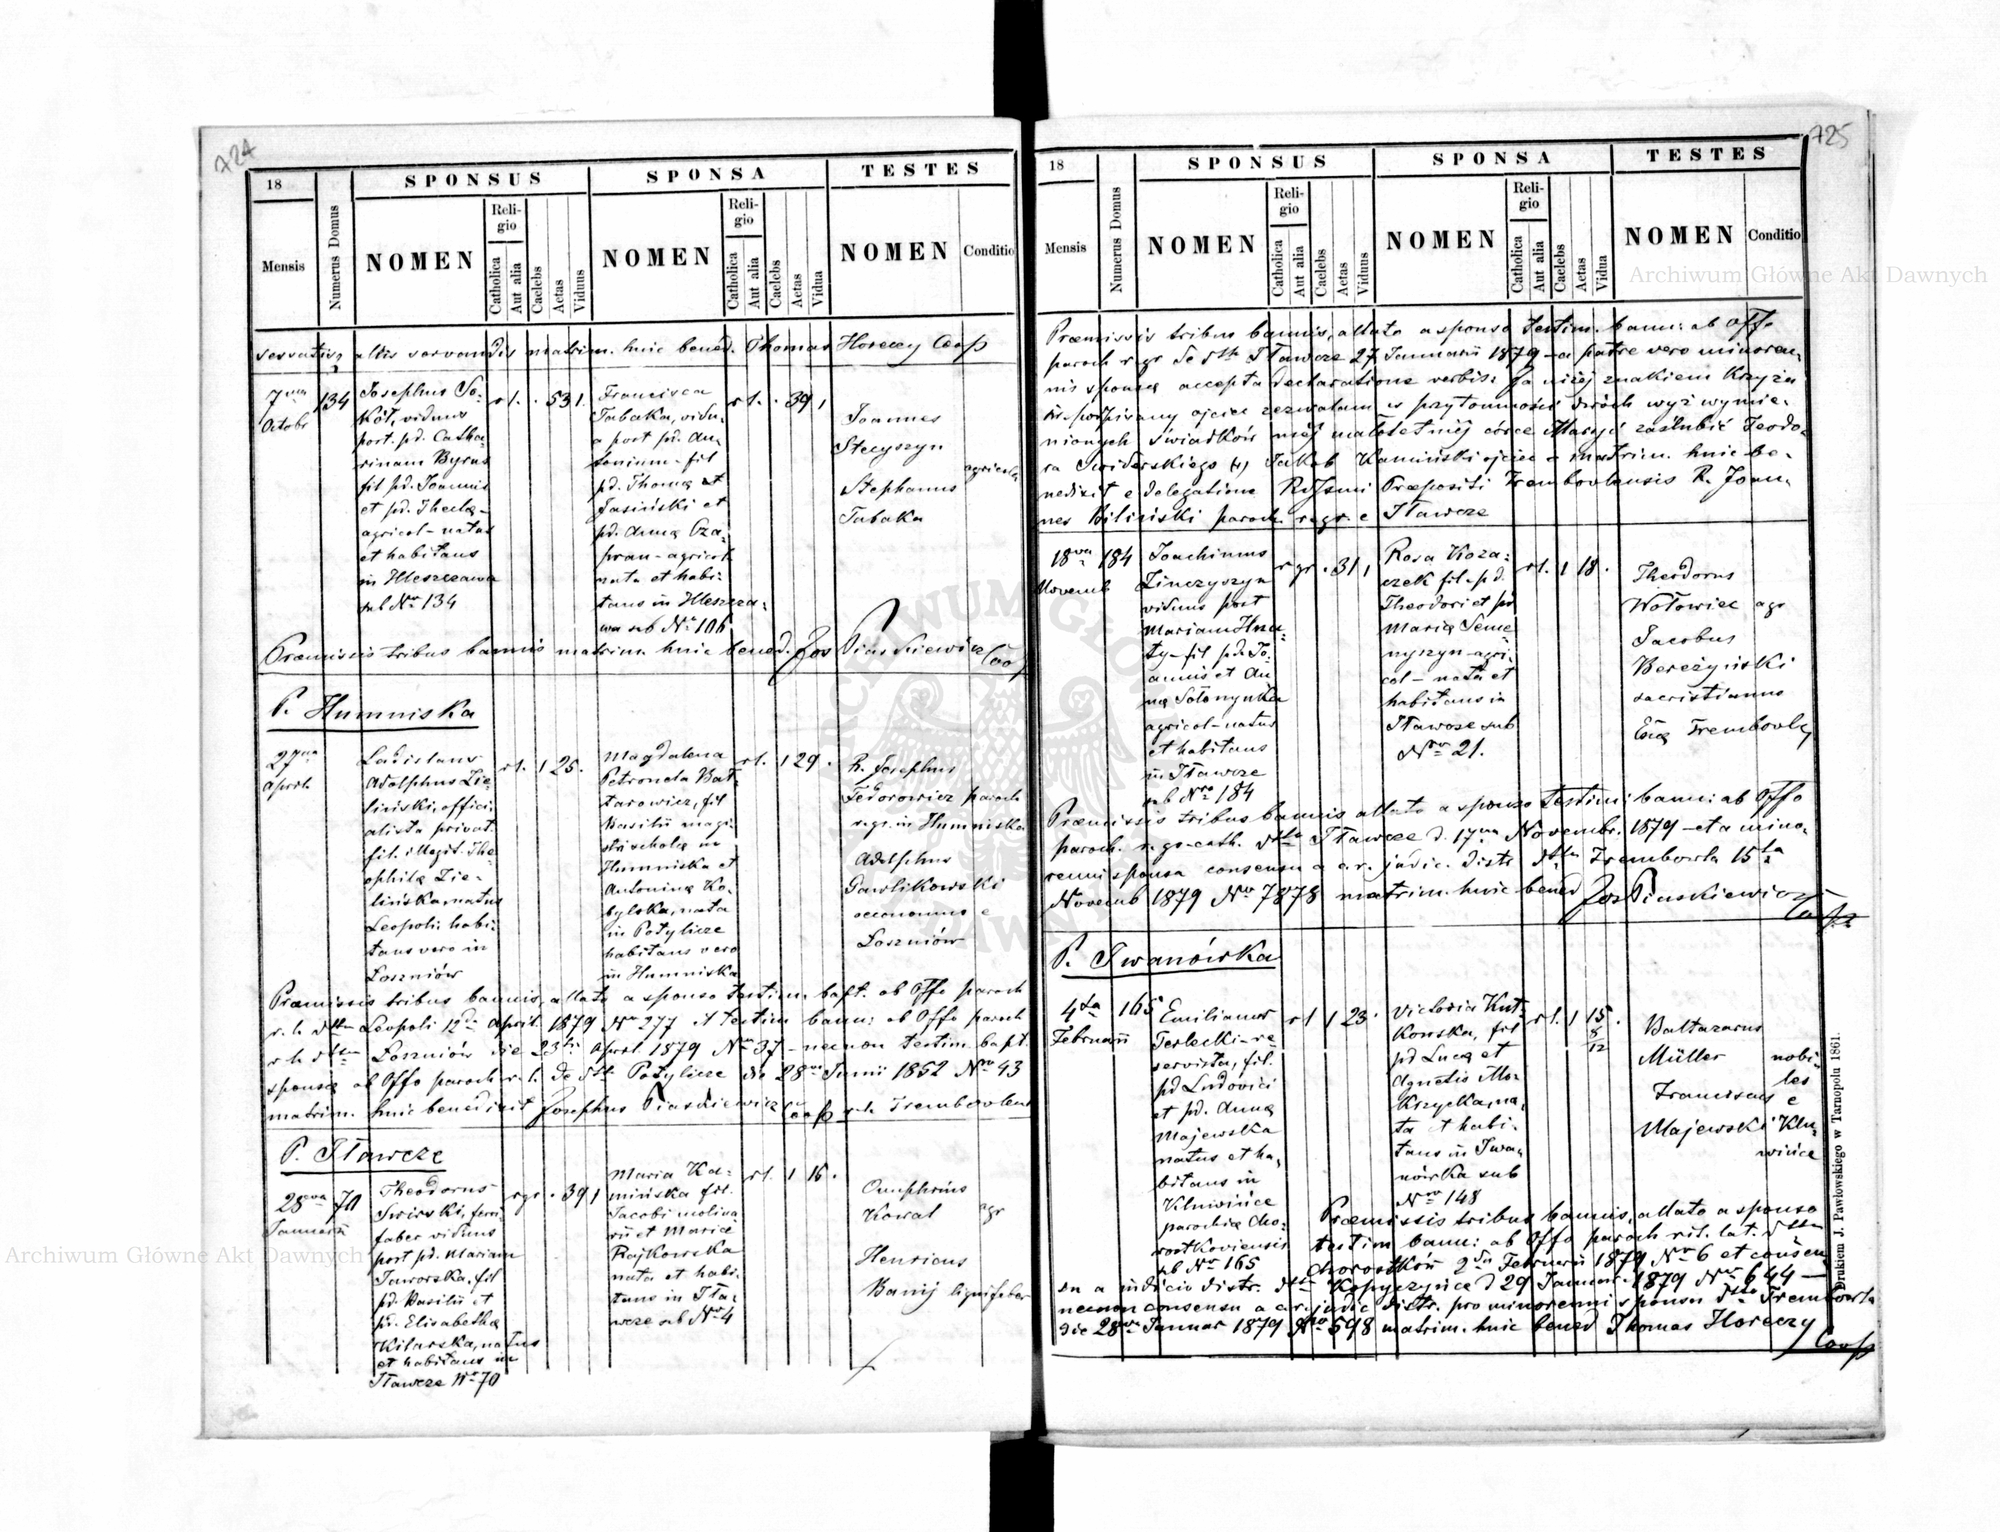 724
18
SPONSUS
SPONSA
TESTES
Mensis
Numerus Domus
NOMEN
Religio
Catholica
Aut alia
Caelebs
Aetas
Viduus
NOMEN
Religio
Catholica
Aut alia
Caelebs
Aetas
Vidua
NOMEN
Conditio
servatis, aliis servandis matrim. huic bened. Thomas Horeczy Coop
7ma
Octobr
134
Josephus So-
kół, viduus
post. pd. Catha-
rinam Byrus
fil pd. Joannis
et pd. Theclæ-
agricol- natus
et habitans
in Hleszczawa
sub Nro 134
rl. . 53 1.
Francisca
Tabaka, vidu-
a post pd. An-
tonium- fil
pd. Thomæ et
Jasiński et
pd. Annæ Cza-
pran- agricol
nata et habi-
tans in Hleszcza-
wa sub Nro 106
rl. . 39 1
Joannes
Stecyszyn
Stephanus
Tabaka
agricolæ
Præmissis tribus bannis matrim. huic bened. Jos Piaskiewicz Coo
P. Humniska
27ma
Aprili
Ladislaus
Adolphus Zie-
liński, offici-
alista privat.
fil. illegit. The-
ophilæ Zie-
lińska, natus
Leopoli habi-
tans vero in
Łoszniów
rl. 1 25.
Magdalena
Petronela Bat-
tarowicz, fil
Basilii magi-
stri scholæ in
Humniska et
Antoninæ Ko-
bylska, nata
in Potylicze
habitans vero
in Humniska
rl. 1 29.
R. Josephus
Fedorowicz paroch
r.gr. in Humniska
Adolphus
Pawlikowski
oeconomus e
Łoszniów
Præmissis tribus bannis, allato a sponso testim. bapt. ab Offo paroch
r. l. dtto Leopoli 12a April. 1879 Nro 277 et testim bann: ab Offo paroch
r. l. dtto Łoszniów die 23tii April 1879 Nro 37 - necnon testim. bapt.
sponsæ ab Offo paroch r. l. de dtto Potylicze die 28va Junii 1852 Nro 93
matrim. huic benedixit Josephus Piaskiewicz Coop r.l. Trembovlens
P. Iławcze
28va
Januarii
70
Theodorus
Swirski, ferri-
faber viduus
post pd. Mariam
Jaworska, fil
pd. Basilii et
pd. Elisabethæ
Kilarska, natus
et habitans in
Iławcze Nro 70
rgr . 39 1
Maria Ka-
mińska fil.
Jacobi molina
rii et Mariæ
Rajkowska
nata et habi-
tans in Iła-
wcze sub Nro 4
rl. 1 16.
Onuphrius
Kowal
agr
Henricus
Banij lignifaber
725
18
SPONSUS
SPONSA
TESTES
Mensis
Numerus Domus
NOMEN
Religio
Catholica
Aut alia
Caelebs
Aetas
Viduus
NOMEN
Religio
Catholica
Aut alia
Caelebs
Aetas
Vidua
NOMEN
Conditio
Præmissis tribus bannis, allato a sponso testim. bann: ab Offo
paroch r gr de dtto Iławcze 27 Januarii 1879 - a patre vero minoren-
nis sponsæ accepta declaratione verbis: Ja niżej znakiem Krzyża
św. podpisany ojciec zezwalam w przytomności dwóch wyż wymie-
nionych świadków mej małoletniéj córce Maryi zaślubić Teodo-
ra Swiderskiego (+) Jakób Kamiński ojciec - matrim. huic be-
nedixit e delegatione Rdssmi Præpositi Trembovlensis R. Joan-
nes Biliński paroch. r.gr. e Iławcze
18va
Novemb
184
Joachimus
Linczyszyn
viduus post
Mariam Hna-
ty- fil pd. Jo-
annis et An-
næ Sołonynka
agricol- natus
et habitans
in Iławcze
sub Nro 184
r gr . 31 1
Rosa Koza-
czek fil. pd.
Theodori et pd
Mariæ Seme
nyszyn- agri-
col- nata et
habitans in
Iławcze sub
Nro 21.
rl. 1 18 .
Theodorus
Wołowiec agr
Jacobus
Bereżyński
sacristianus
Ecæ Trembovlæ
Præmissis tribus bannis allato a sponso testim: bann: ab Offo
paroch. r. gr. cath. dtto Iławcze d. 17ma Novembr. 1879 - et a mino-
renni sponsa consensu a c.r. judic. distr dtto Trembowla 15ta
Novemb 1879 Nro 7878 matrim. huic bened Jos Piaskiewicz
Coop
P. Iwanówka
4ta
Februarii
165
Emilianus
Terlecki- re-
servista, fil.
pd Ludovici
et pd. Annæ
Majewska
natus et ha-
bitans in
Kluwińce
parochiæ Cho-
rostkoviensis
sub Nro 165
rl 1 23.
Victoria Kut-
kowska, fil
pd Lucæ et
Agnetis Mo-
krzycka, na-
ta et habi-
tans in Iwa-
nówka sub
Nro 148
rl. 1 15 8/12 .
Baltazarus
Müller
Franciscus
Majewski
nobi-
les
e
Klu-
wińce
Præmissis tribus bannis, allato a sponso
testim bann: ab Offo paroch rit. lat. dtto
Chorostków 2da Februarii 1879 Nro 6 et consen
su a judicio distr. dtto Kopyczyńce d 29 Januar. 1879 Nro 644 -
necnon consensu a c.r. judic distr. pro minorenni sponsa dtto Trembowla
die 28va Januar 1879 Nro 598 matrim. huic bened Thomas Horeczy
Coop
Drukiem J. Pawłowskiego w Tarnopolu 1861.
Archiwum Główne Akt Dawnych
Archiwum Główne Akt Dawnych
ARCHIWUM GŁÓWNE AKT DAWNYCH